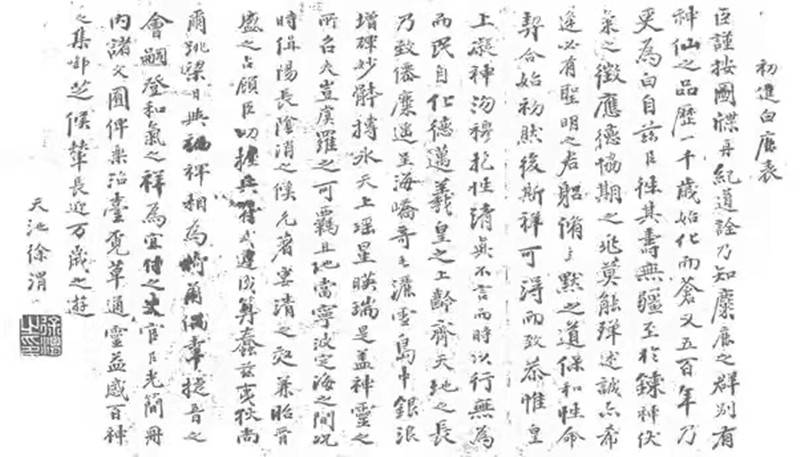 初進白鹿表
臣謹按圖牒再紀道詮乃知麋鹿之群別有
神仙之品歷一千歲始化而蒼又五百年乃
更為白自茲以往其壽無疆至於鍊神伏
氣之徵應德協期之兆莫能殫述誠亦希
逢必有聖明之君躬脩玄默之道保和性命
契合始初然後斯祥可得而致恭惟皇
上凝神沕穆抱性清真不言而時以行無為
而民自化德邁羲皇之上齡齊天地之長
乃致僊麋遙呈海嶠奇毛灑雪島中銀浪
增輝妙體摶氷天上瑶星暎瑞是蓋神靈之
所召夫豈虞羅之可羈且地當寧波定海之間況
時值陽長陰消之候允著晏清之效兼昭晉
盛之占顧臣叨握兵符式遵成算蠢茲夷狄尚
爾跳梁日與褊裨相為犄角偶幸捷音之
會嗣登和氣之祥為宜付之史官以光簡冊
內諸文囿俾樂沼臺覓草通靈益感百神
之集啣芝候輦長迎万歲之遊
天池徐渭
徐渭之印